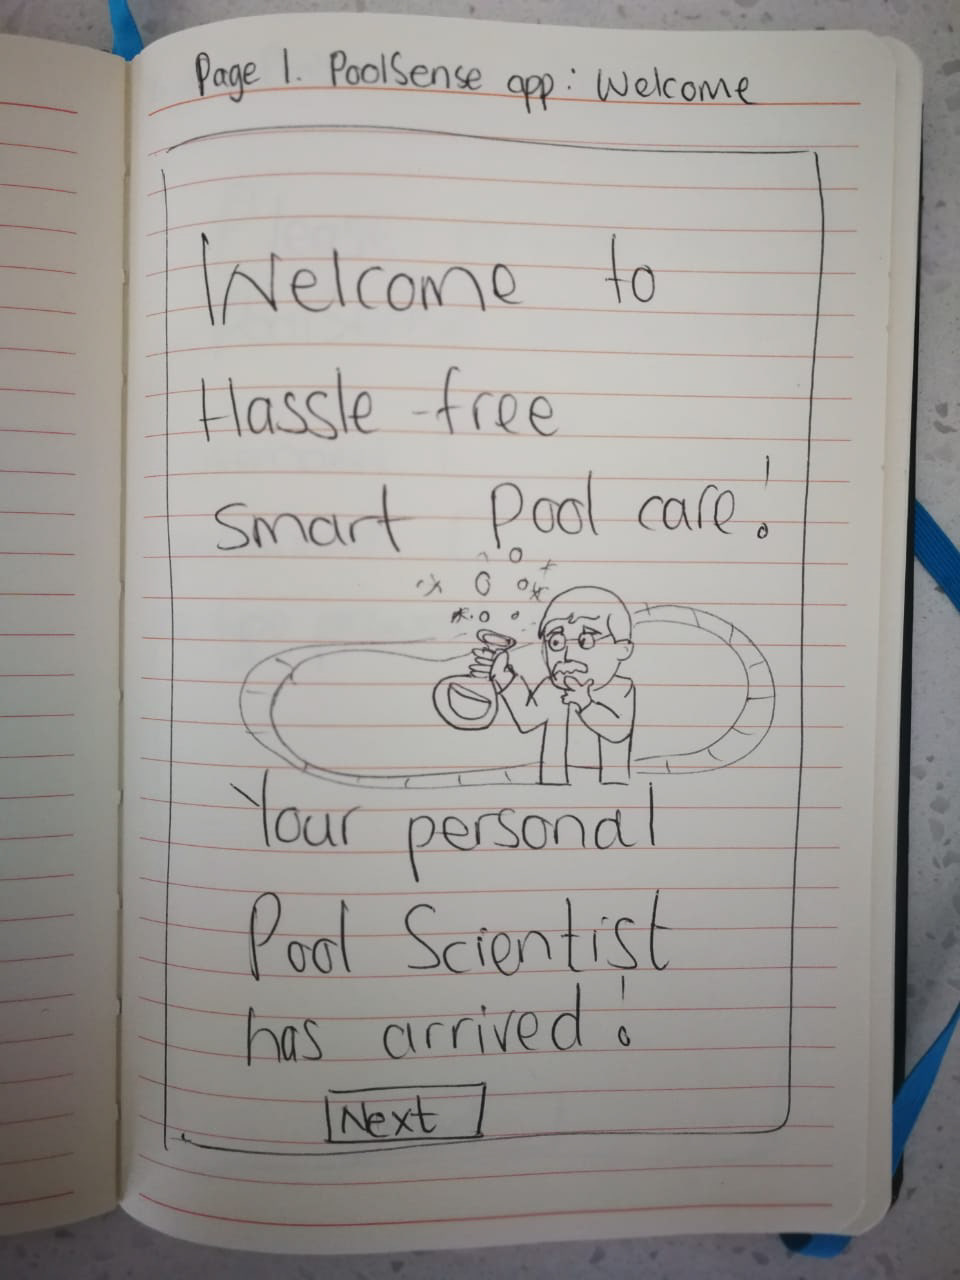 Page 1. PoolSense app: Welcome
Welcome to
Hassle-free
smart Pool care!
Your personal
Pool Scientist
has arrived!
Next